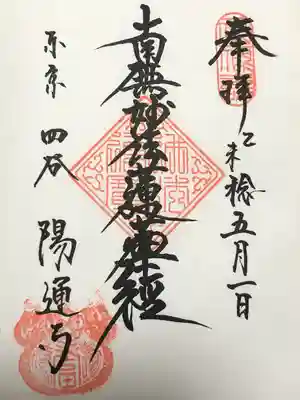 奉拝
乙未稔五月一日
南無妙法蓮華経
東京 四谷 陽運寺